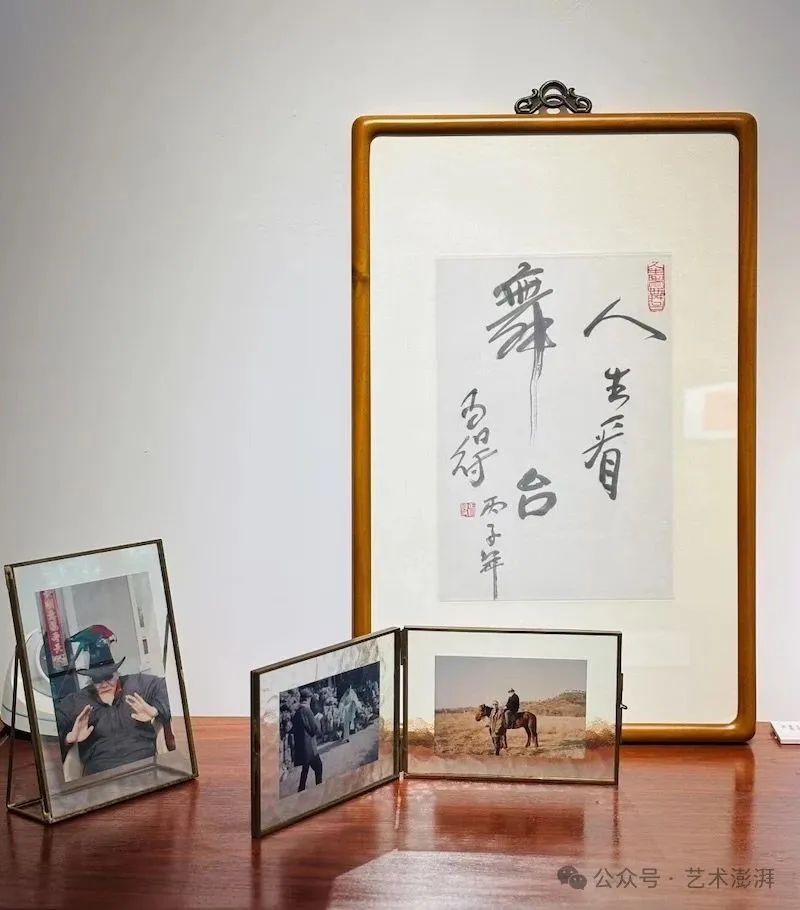 人生看
舞台
马得
丙子年
公众号·艺术澎湃